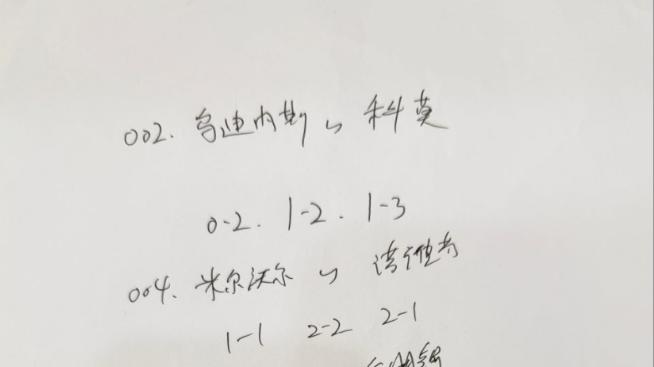 002. 乌迪内斯 vs 科莫
0-2. 1-2. 1-3
004. 米尔沃尔 vs 诺维奇
1-1 2-2 2-1